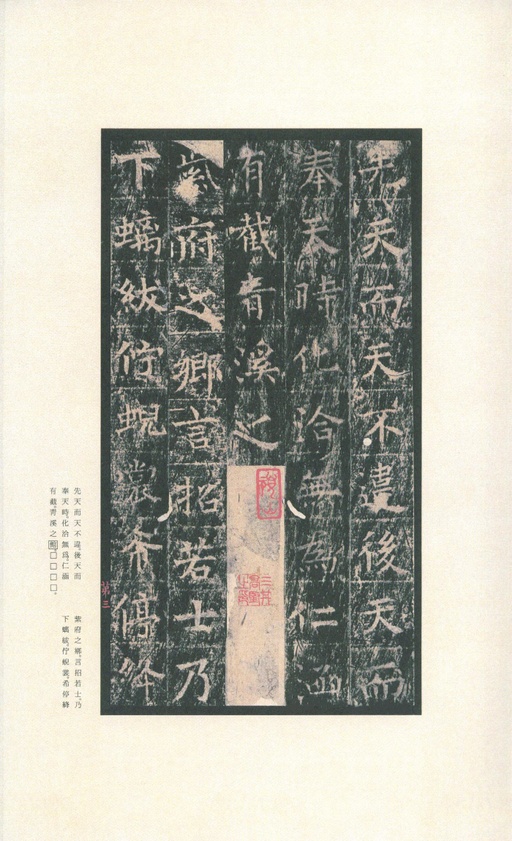 先天而天不違後天而
奉天時化洽無為仁涵
有截青溪之
紫府之鄉言招若士乃
下螭紱佇蜺裳希停
第三
先天而天不違。後天而
奉天時。化洽無為。仁涵
有截。青溪之□□□□。
紫府之鄉。言招若士。乃
下螭紱。佇蜺裳。希停